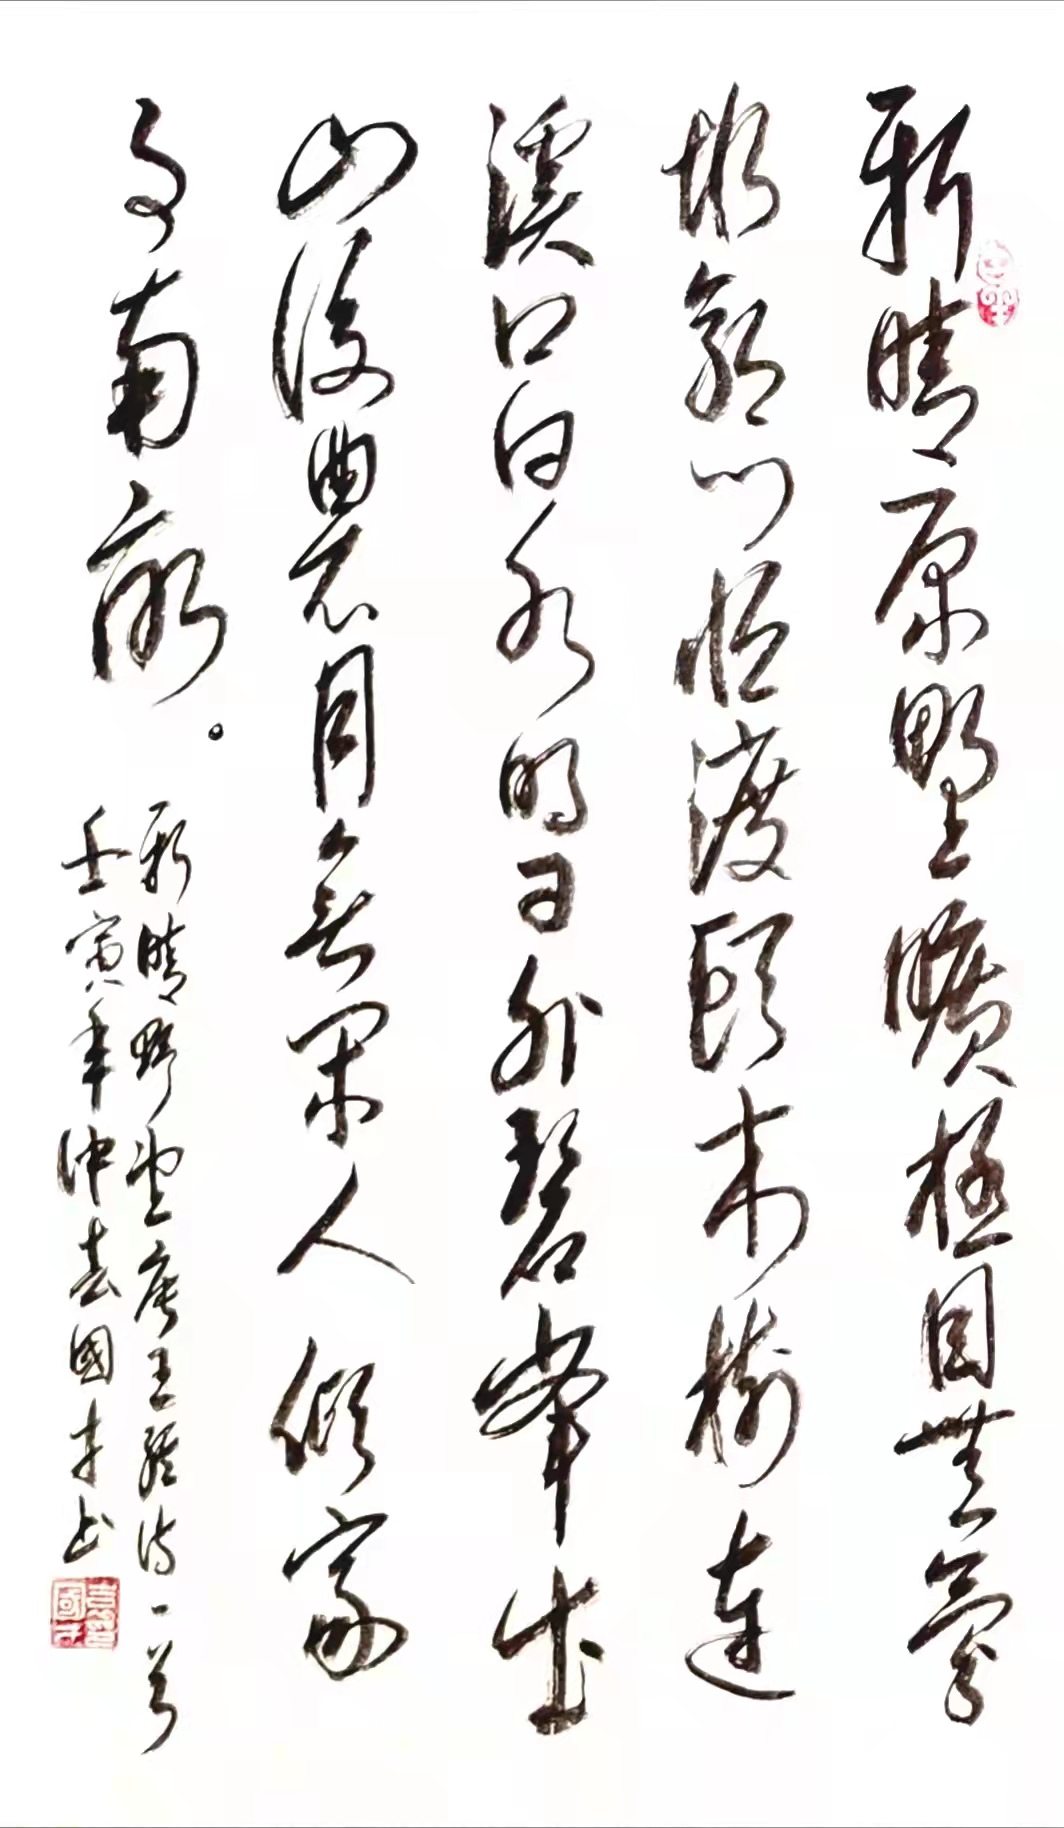 新晴原野曠極目無氛
垢郭門臨渡頭村樹連
溪口白水明田外碧峯出
山後農月無閑人傾家
事南畝。
新晴野望唐王維詩一首
壬寅年仲春國才书